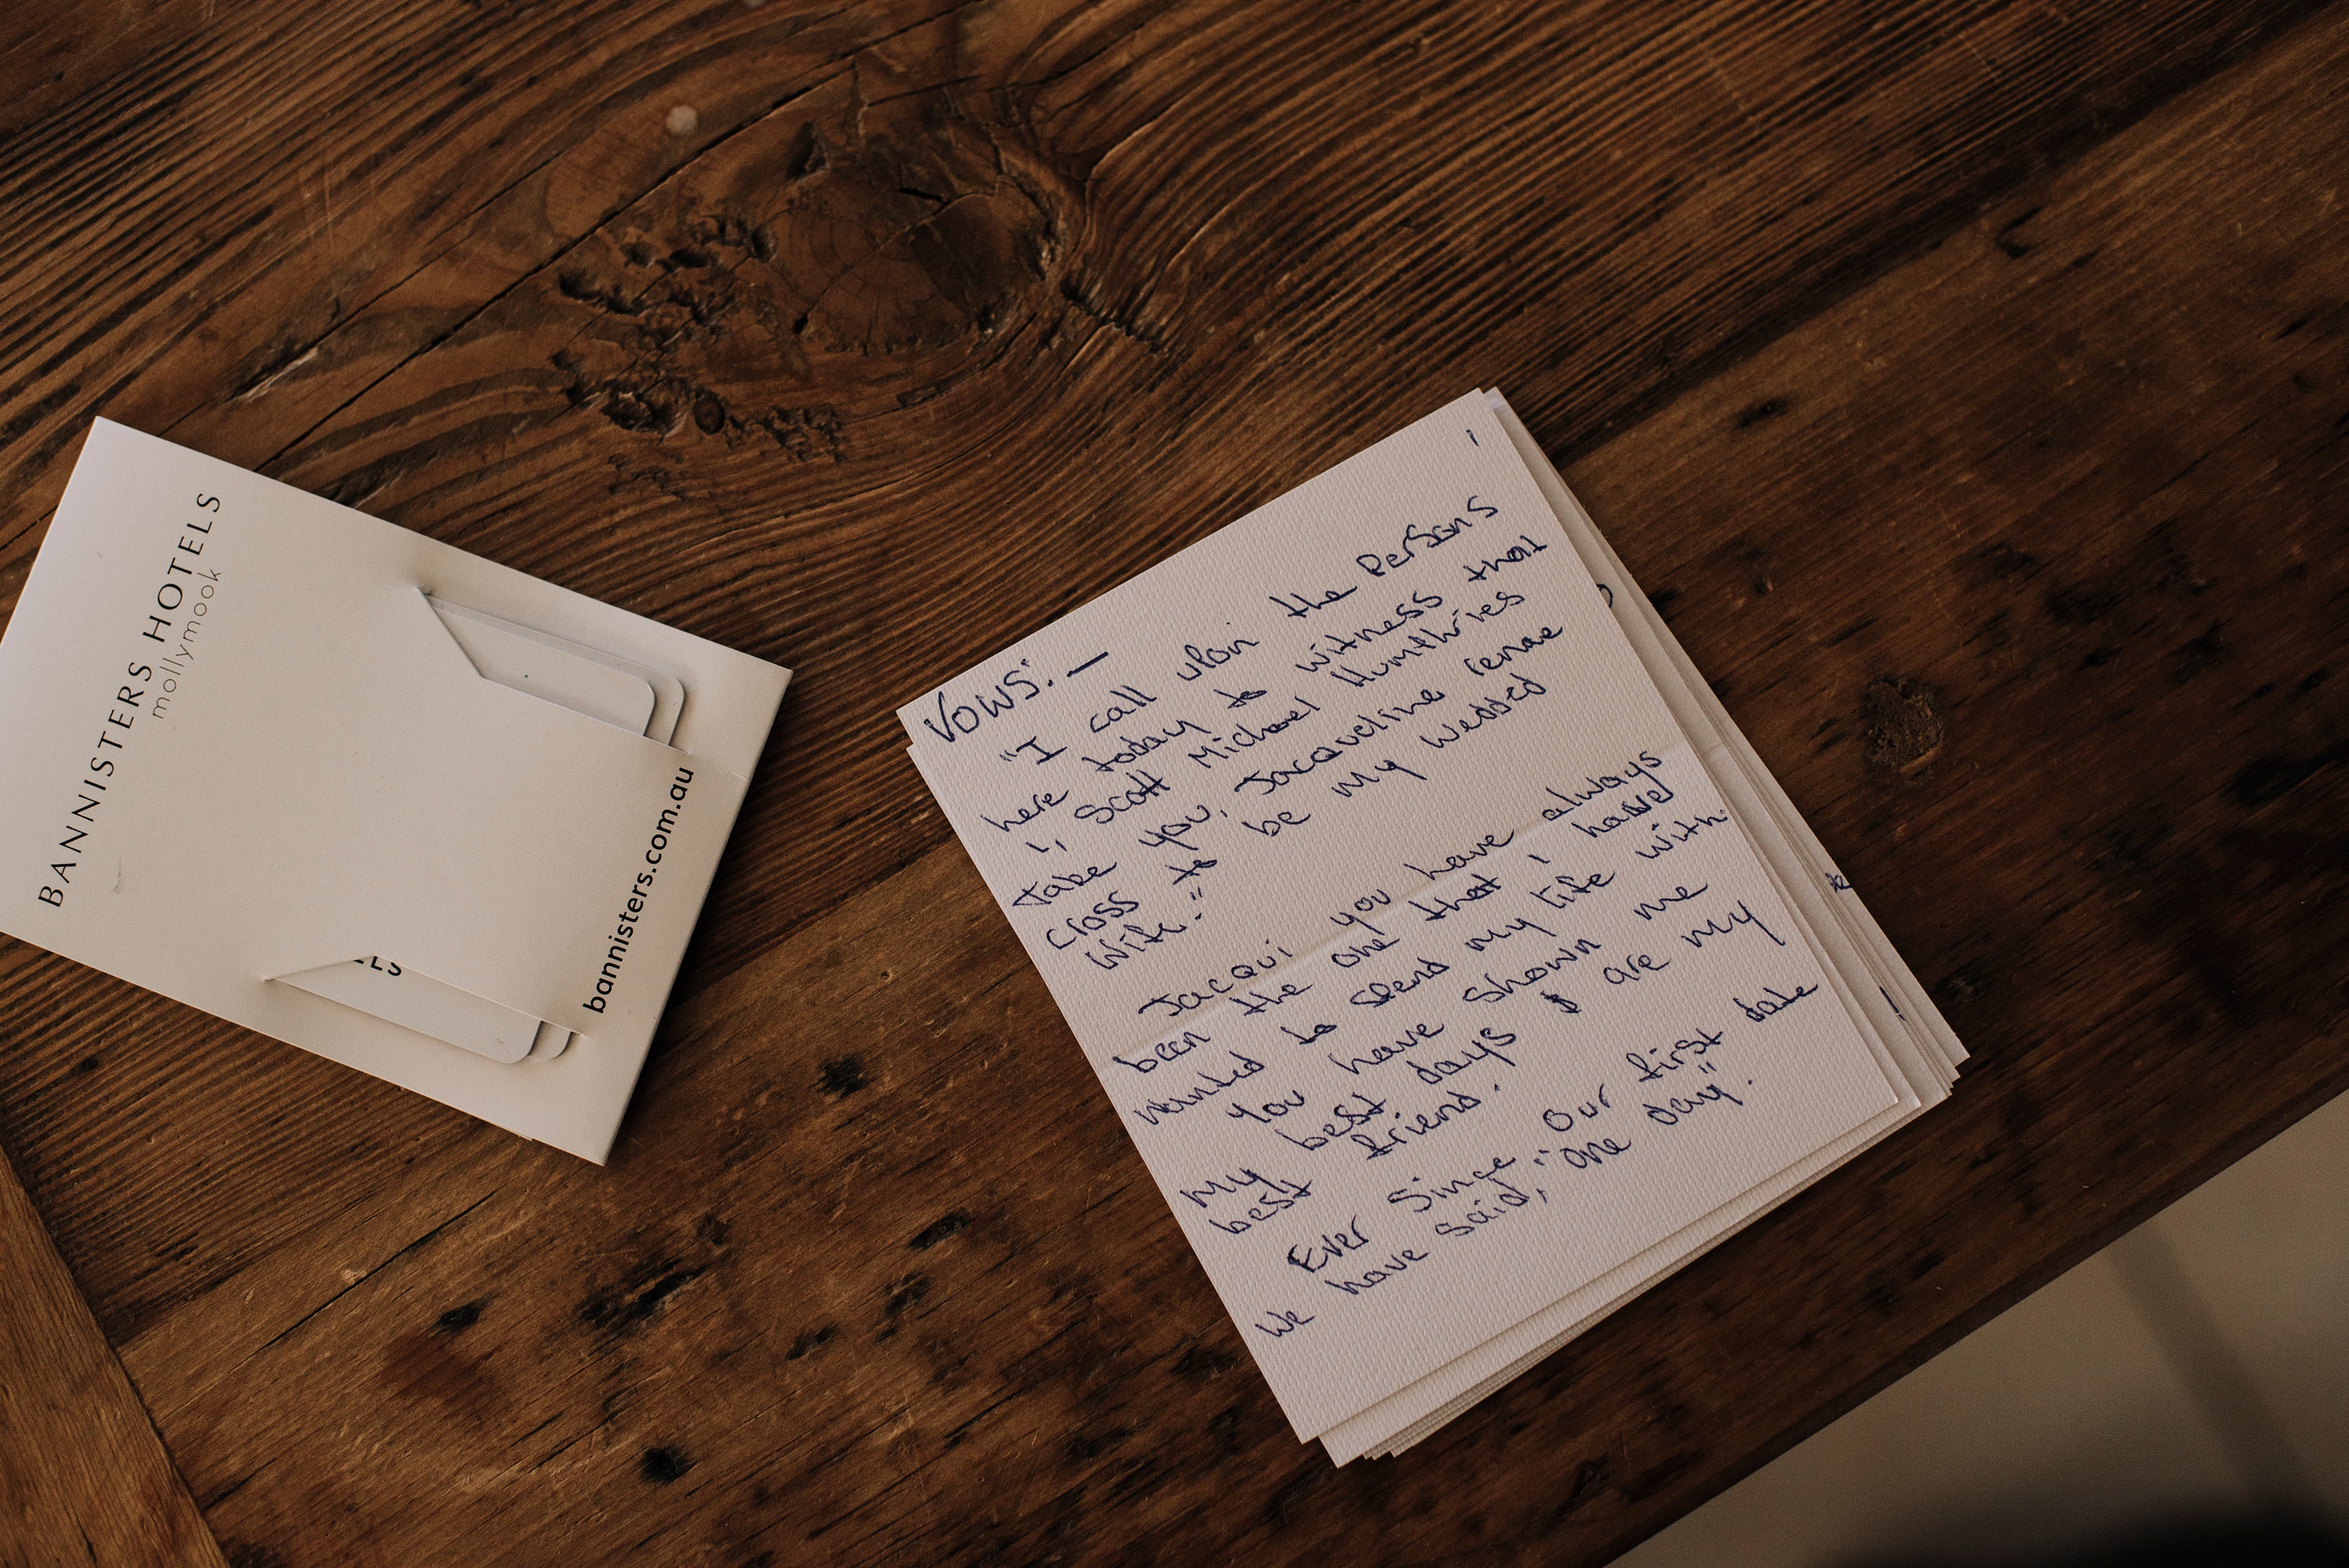 BANNISTERS HOTELS
mollymook
bannisters.com.au
1
VOWS:—
"I call upon the Persons
here today to witness that
I, Scott Michael Humthries
Take you, Jacqueline renae
Cross to be my wedded
wife."
Jacqui you have always
been the one that I have
wanted to spend my life with.
You have shown me
my best days & are my
best friend.
Ever Since our first date
we have said, "one day".